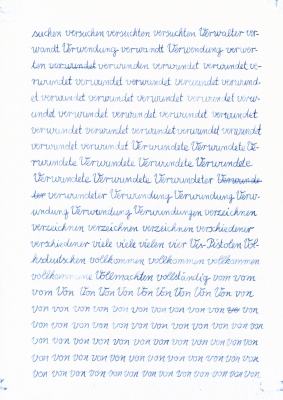 suchen versuchen versuchten versuchten Verwalter ver-
wandt Verwendung verwandt Verwendung verwor-
len verwundet verwunden verwundet verwundet ve-
rwundet verwundet verwundet verwundet verwund-
et verwundet verwundet verwundet verwundet verw-
undet verwundet verwundet verwundet verwundet
verwundet verwundet verwundet verwundet verwundet
verwundet verwundet Verwundete Verwundete Ve-
rwundete Verwundete Verwundete Verwundete
Verwundete Verwundete Verwundeter Verwunde-
ter verwundeter Verwundung Verwundung Verw-
undung Verwundung Verwundungen verzeichnen
verzeichnen verzeichnen verzeichnen verschiedener
verschiedener viele viele vielen vier Vis-Pistolen Vol-
ksdeutschen vollkommen vollkommen vollkommen
vollkommene Vollmachten vollständig vom vom
vom Von Von Von Von Von Von Von von
von von von von von von von von von von
von von von von von von von von von von von
von von von von von von von von von von von
von von von von von von von von von von von
von von von von von von von von von von von